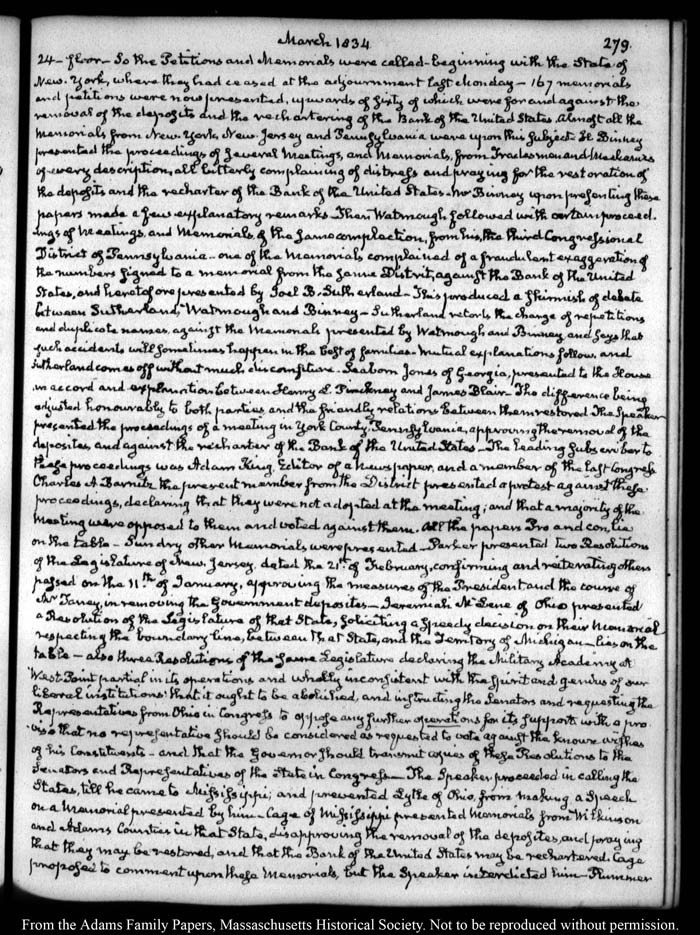 March 1834
279.
24 – floor – So the Petitions and Memorials were called – beginning with the State of
New-York, where they had ceased at the adjournment last Monday – 167 memorials
and petitions were now presented, upwards of sixty of which were for and against the
removal of the deposits and the rechartering of the Bank of the United States. Almost all the
Memorials from New York, New-Jersey and Pennsylvania were upon this subject. H. Binney
presented the proceedings of several Meetings, and Memorials, from Tradesmen and Mechanics
of every description, all bitterly complaining of distress and praying for the restoration of
the deposits and the recharter of the Bank of the United States – Mr Binney upon presenting these
papers made a few explanatory remarks – Then Watmough followed with certain proceed-
ings of Meetings, and Memorials, of the same complection, from his, the third Congressional
District of Pennsylvania – one of the Memorials complained of a fraudulent exaggeration of
the numbers signed to a memorial from the same District, against the Bank of the United
States, and heretofore presented by Joel B. Sutherland – This produced a skirmish of debate
between Sutherland, Watmough and Binney – Sutherland retorts the charge of repetitions
and duplicate names, against the Memorials presented by Watmough and Binney and says that
such accidents will sometimes happen in the best of families – Mutual explanations follow, and
Sutherland comes off without much discomfiture. Seaborn Jones of Georgia, presented to the House
an accord and explanation between Henry L. Pinckney and James Blair – The difference being
adjusted honourably to both parties and the friendly relations between them restored The Speaker
presented the proceedings of a meeting in York County, Pennsylvania, approving the removal of the
deposites, and against the recharter of the Bank of the United States – The leading subscriber to
these proceedings was Adam King, Editor of a Newspaper, and a member of the last Congress
Charles A Barnitz the present member from the District presented a protest against these
proceedings, declaring that they were not adopted at the meeting; and that a majority of the
Meeting were opposed to them and voted against them. All the papers Pro and con, lie
on the table – Sundry other Memorials were presented – Parker presented two Resolutions
of the Legislature of New Jersey, dated the 21st of February, confirming and reiterating others
passed on the 11th of January, approving the measures of the President and the course of
Mr Taney, in removing the Government deposites – Jeremiah McLene of Ohio presented
a Resolution of the Legislature of that State, soliciting a speedy decision on their Memorial
respecting the boundary line, between that State, and the Territory of Michigan – lies on the
table – also three Resolutions of the same Legislature declaring the Military Academy at
West Point partial in its operations and wholly inconsistent with the spirit and genius of our
liberal institutions that it ought to be abolished, and instructing the Senators and requesting the
Representatives from Ohio in Congress to oppose any further operations for its support with a pro-
viso that no representative should be considered as requested to vote against the known wishes
of his Constituents – and that the Governor should transmit copies of these Resolutions to the
Senators and Representatives of the State in Congress – The Speaker proceeded in calling the
States, till he came to Mississippi; and prevented Lytle of Ohio, from making a Speech
on a Memorial presented by him – Cage of Mississippi presented Memorials from Wilkinson
and Adams Counties in that State, disapproving the removal of the deposites, and praying
that they may be restored, and that the Bank of the United States may be rechartered. Cage
proposed to comment upon these Memorials, but the Speaker interdicted him – Plummer
From the Adams Family Papers, Massachusetts Historical Society. Not to be reproduced without permission.